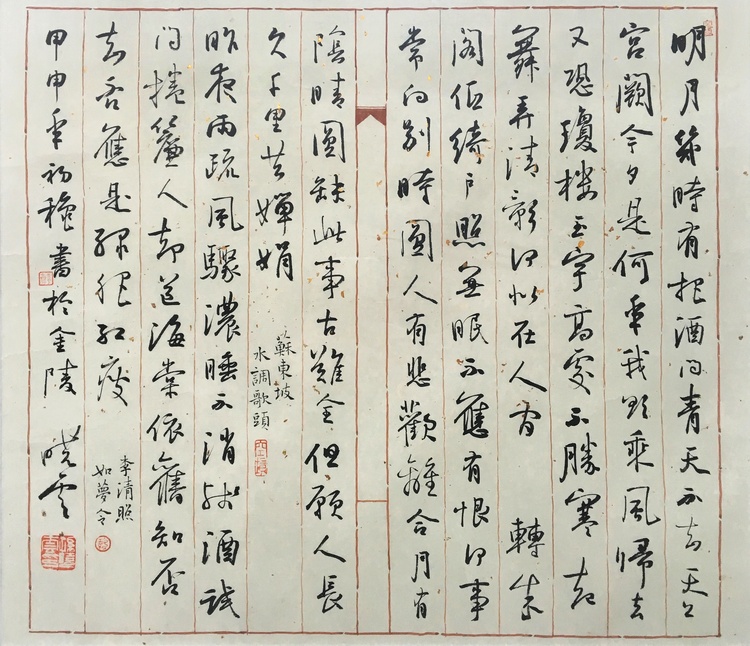 明月幾時有把酒問青天不知天上
宮闕今夕是何年我欲乘風歸去
又恐瓊樓玉宇高處不勝寒起
舞弄清影何似在人間 轉朱
閣低綺戶照無眠不應有恨何事
常向別時圓人有悲歡離合月有
陰晴圓缺此事古難全但願人長
久千里共嬋娟
蘇東坡
水調歌頭
昨夜雨疏風驟濃睡不消殘酒試
問捲簾人卻道海棠依舊知否
知否應是綠肥紅瘦
李清照
如夢令
甲申年初穐書於金陵 曉雲